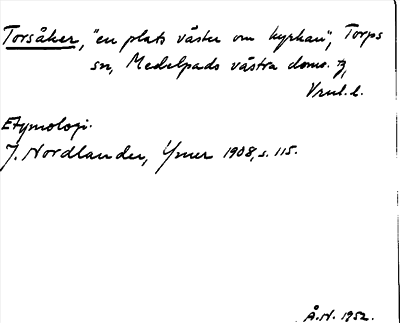 Torsåker, "en plats väster om kyrkan", Torps
sn, Medelpads västra doms. 
Vnl. l.
Etymologi.
J. Nordlander, Ymer 1908, s. 115.
Å.N. 1952.